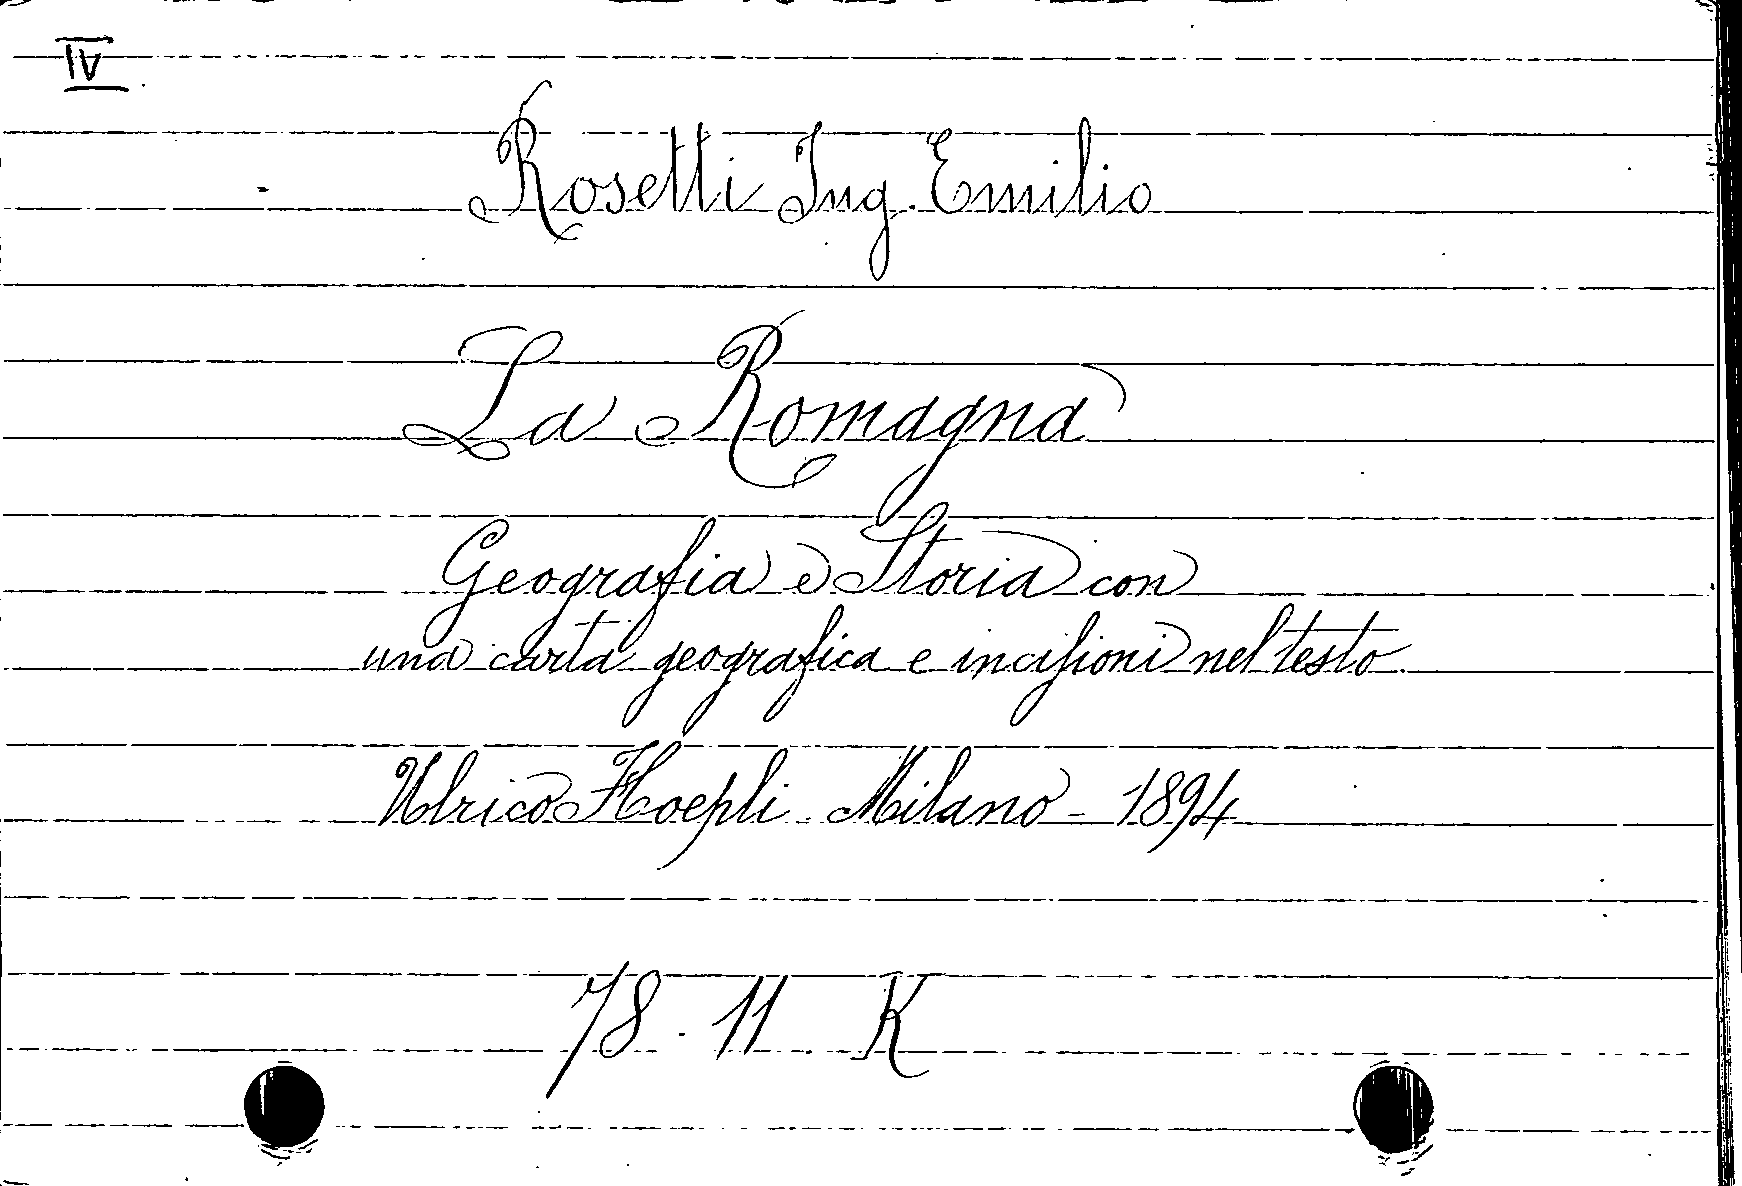 IV
Rosetti Ing. Emilio
La Romagna
Geografia e Storia con
una carta geografica e incisioni nel testo
Ulrico Hoepli Milano - 1894
78 . 11 K